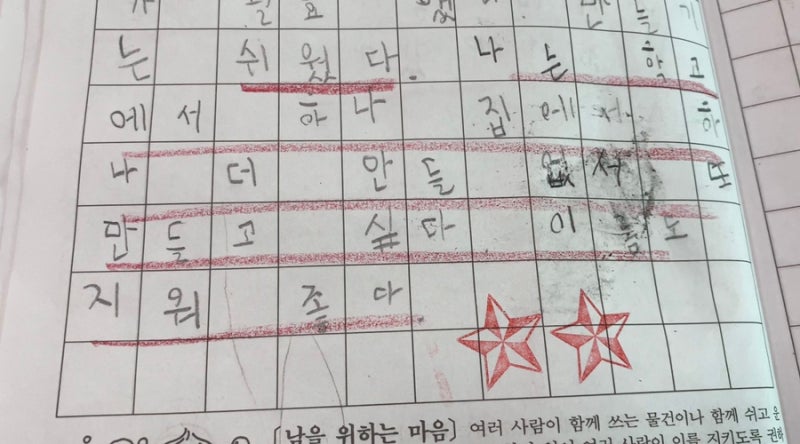 는 쉬웠다. 나는 학고
에서 하나 집에서 하
나 더 안들 없서 또
만들고 싶다 이름노
지워 좋다
[남을 위하는 마음] 여러 사람이 함께 쓰는 물건이나 함께 쉬고 운